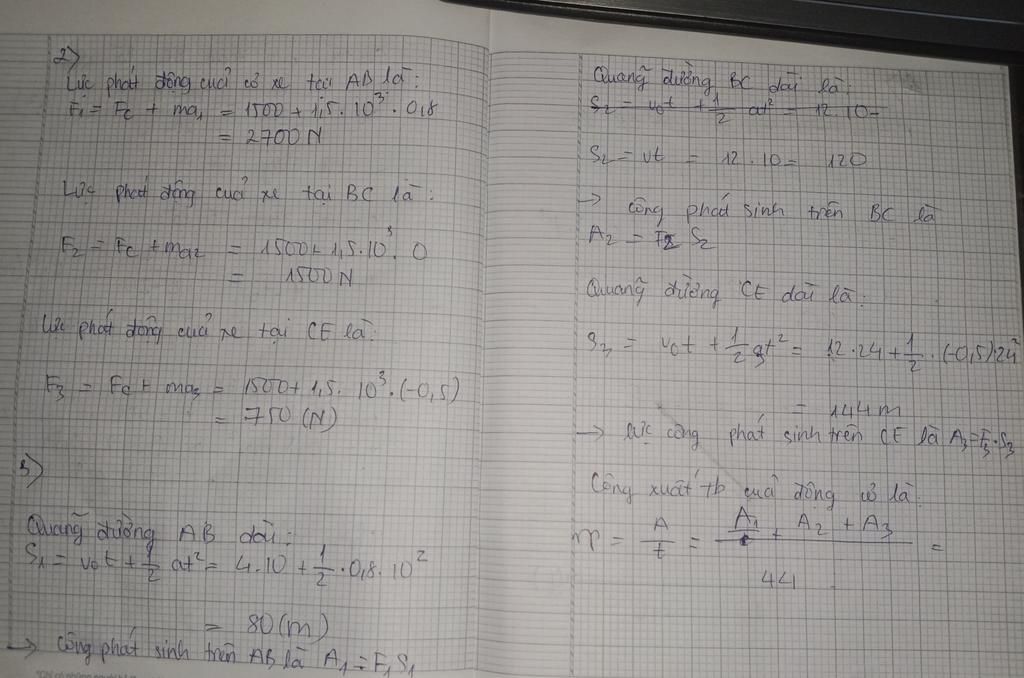 2)
Lực phát động của cơ xe tại AB là:
F₁ = Fc + ma₁ = 1500 + 1,5.10³.0,8
= 2700 N
Lực phát động của xe tại BC là:
F₂ = Fc + ma₂ = 1500 + 1,5.10³.0
= 1500 N
Lực phát động của xe tại CE là:
F₃ = Fc + ma₃ = 1500 + 1,5.10³.(-0,5)
= 750 (N)
3)
Quãng đường AB dài:
S₁ = v₀t + 1/2 at² = 4.10 + 1/2 . 0,8.10²
= 80 (m)
→ Công phát sinh trên AB là A₁ = F₁S₁
Quãng đường BC dài là:
S₂ = v₀t + 1/2 at² = 12.10
S₂ = vt = 12.10 = 120
→ công phát sinh trên BC là
A₂ = F₂ S₂
Quãng đường CE dài là:
S₃ = v₀t + 1/2 at² = 12.24 + 1/2 . (-0,5).24²
= 144 m
→ công phát sinh trên CE là A₃ = F₃.S₃
Công xuất tb của động cơ là:
P = A/t = (A₁ + A₂ + A₃)/44 =